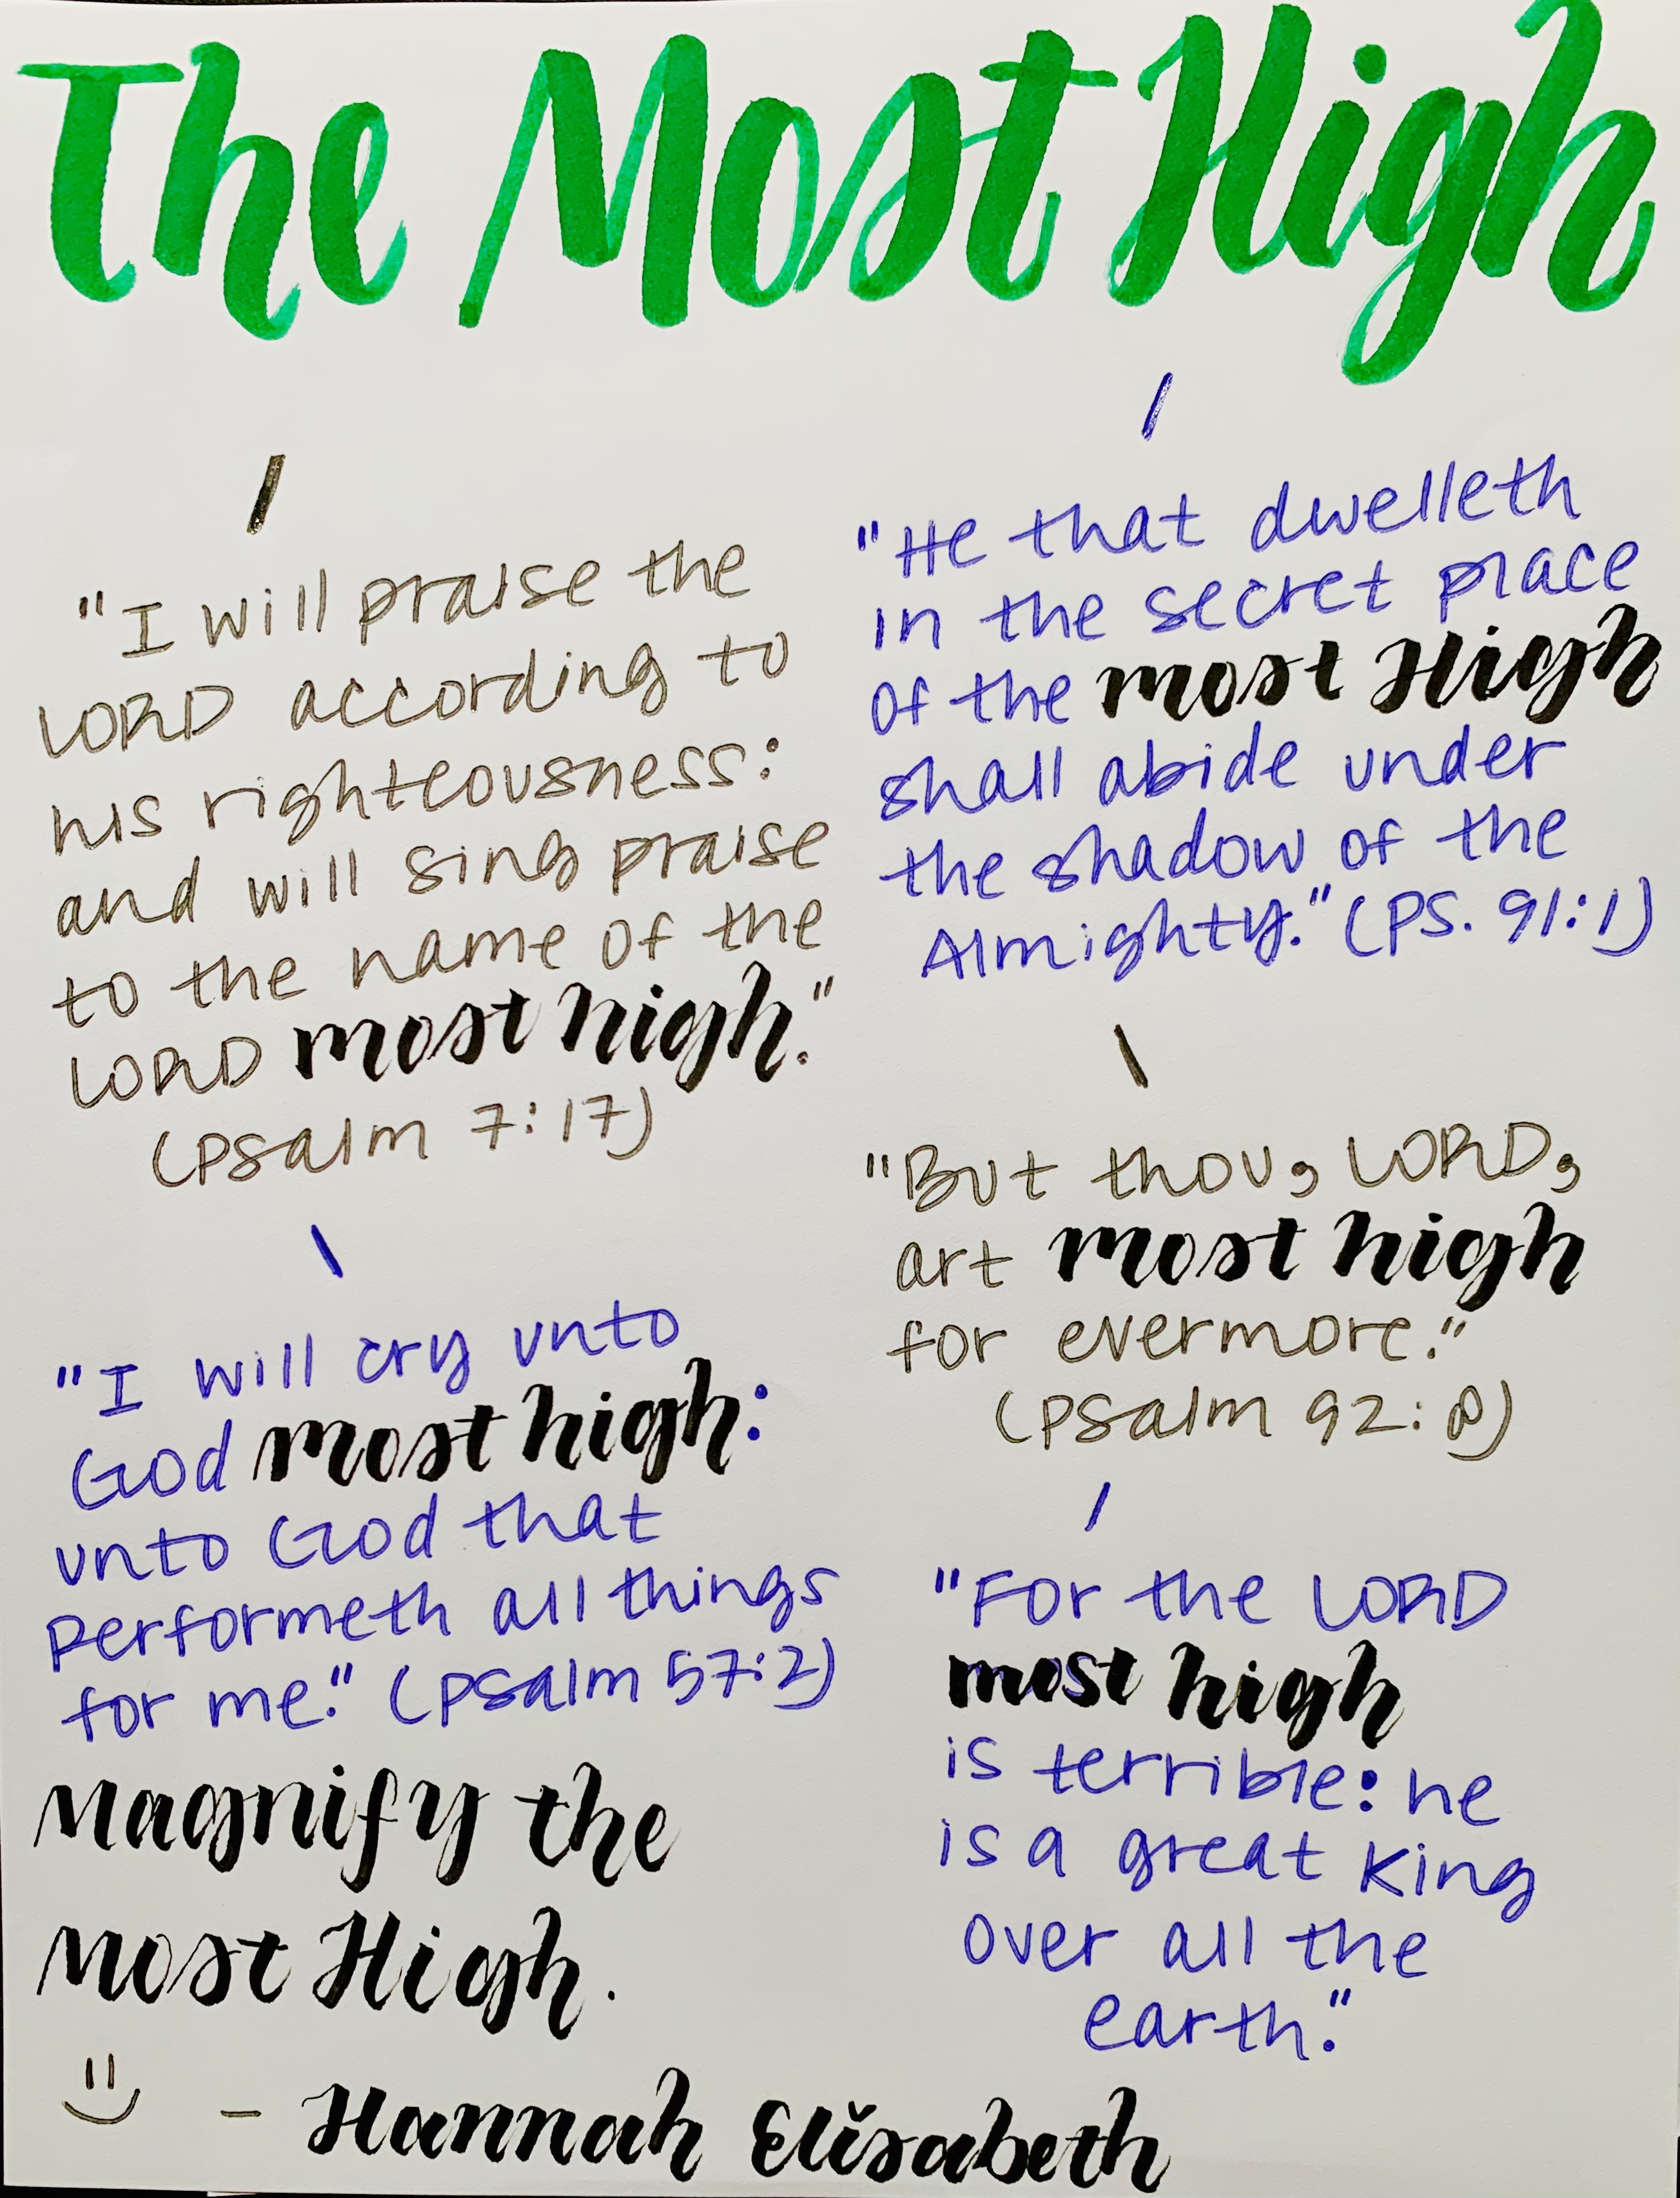 The Most High
"I will praise the
LORD according to
his righteousness:
and will sing praise
to the name of the
LORD most high."
(Psalm 7:17)
"I will cry unto
God most high:
unto God that
performeth all things
for me." (Psalm 57:2)
Magnify the
Most High.
"He that dwelleth
in the secret place
of the most High
shall abide under
the shadow of the
Almighty." (PS. 91:1)
"But thou, LORD,
art most high
for evermore."
(Psalm 92:8)
"For the LORD
most high
is terrible: he
is a great King
over all the
earth."
- Hannah Elisabeth